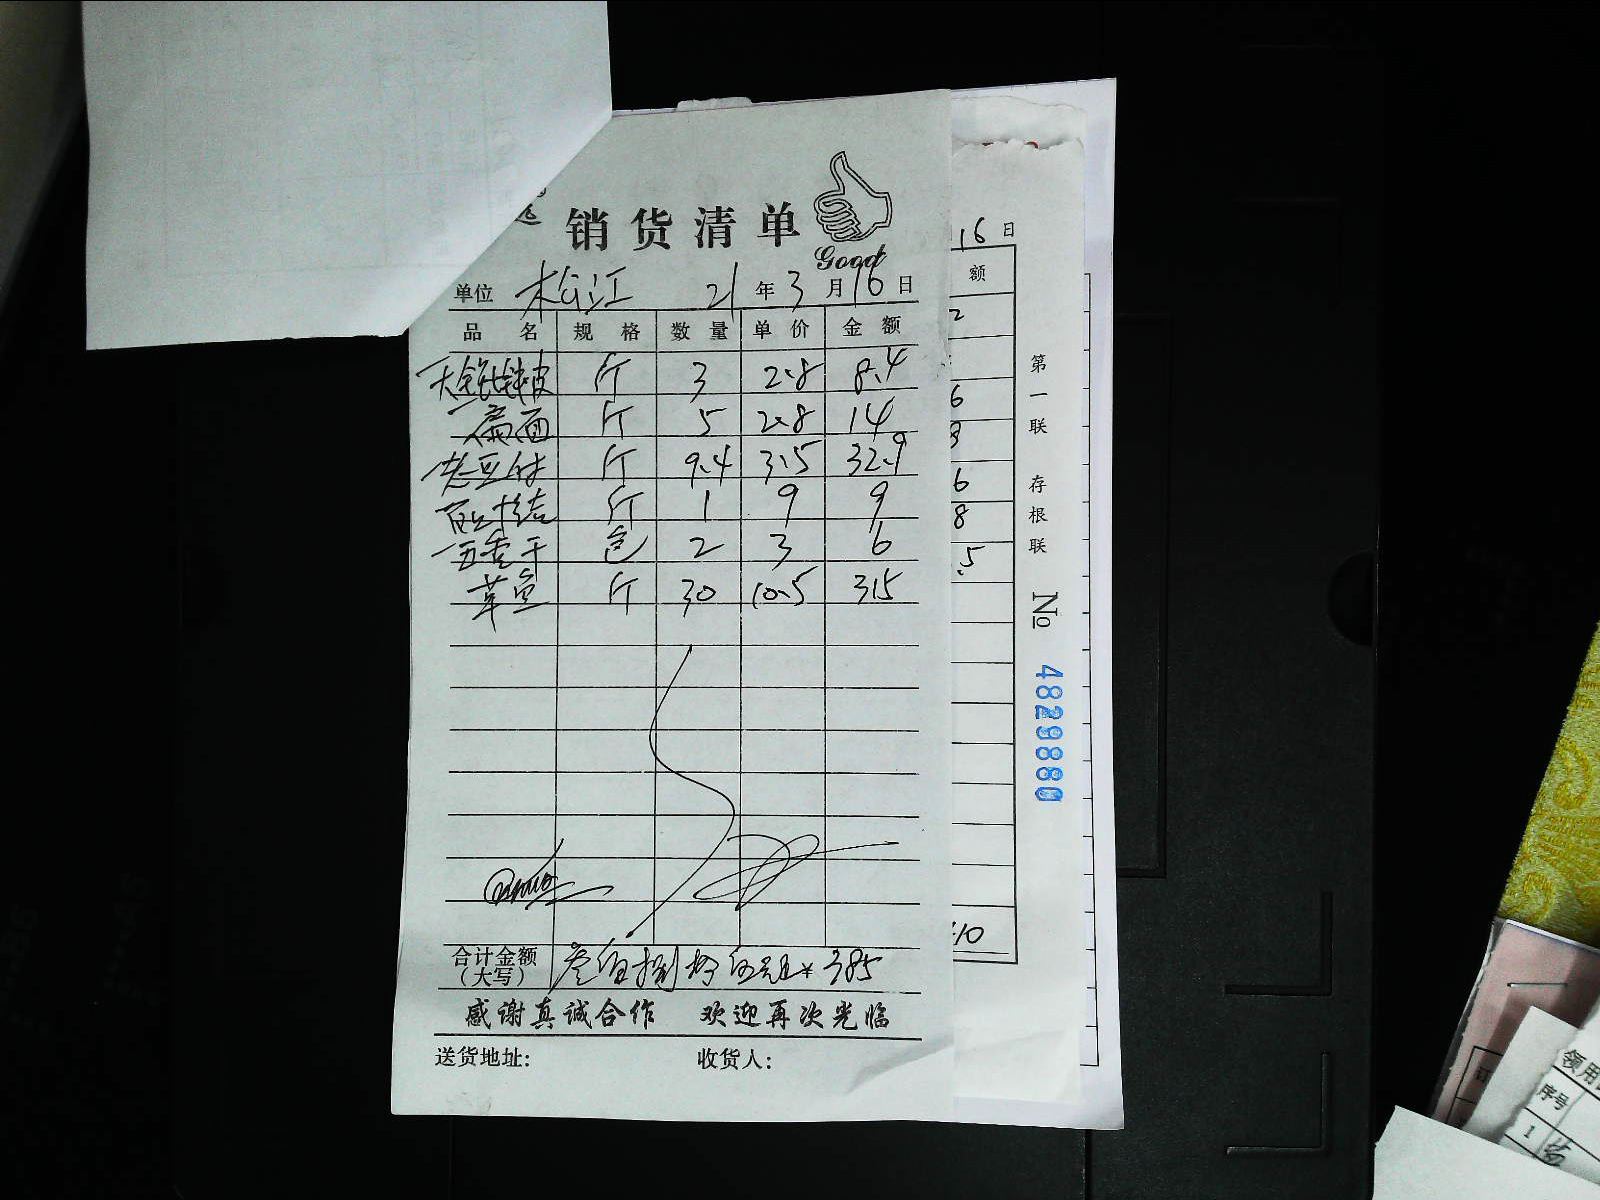 销货清单
Good
单位 松江 21年3月16日
品名 规格 数量 单价 金额
大馄饨皮 斤 3 2.8 8.4
扁面 斤 5 2.8 14
老豆付 斤 9.4 3.5 32.9
百叶结 斤 1 9 9
五香干 包 2 3 6
草鱼 斤 30 10.5 315
合计金额(大写) 叁佰捌拾伍元 ¥385
感谢真诚合作 欢迎再次光临
送货地址: 收货人:
16日
额
2
6
8
6
8
.5
10
第一联 存根联 No 4829880
领用
序号
1